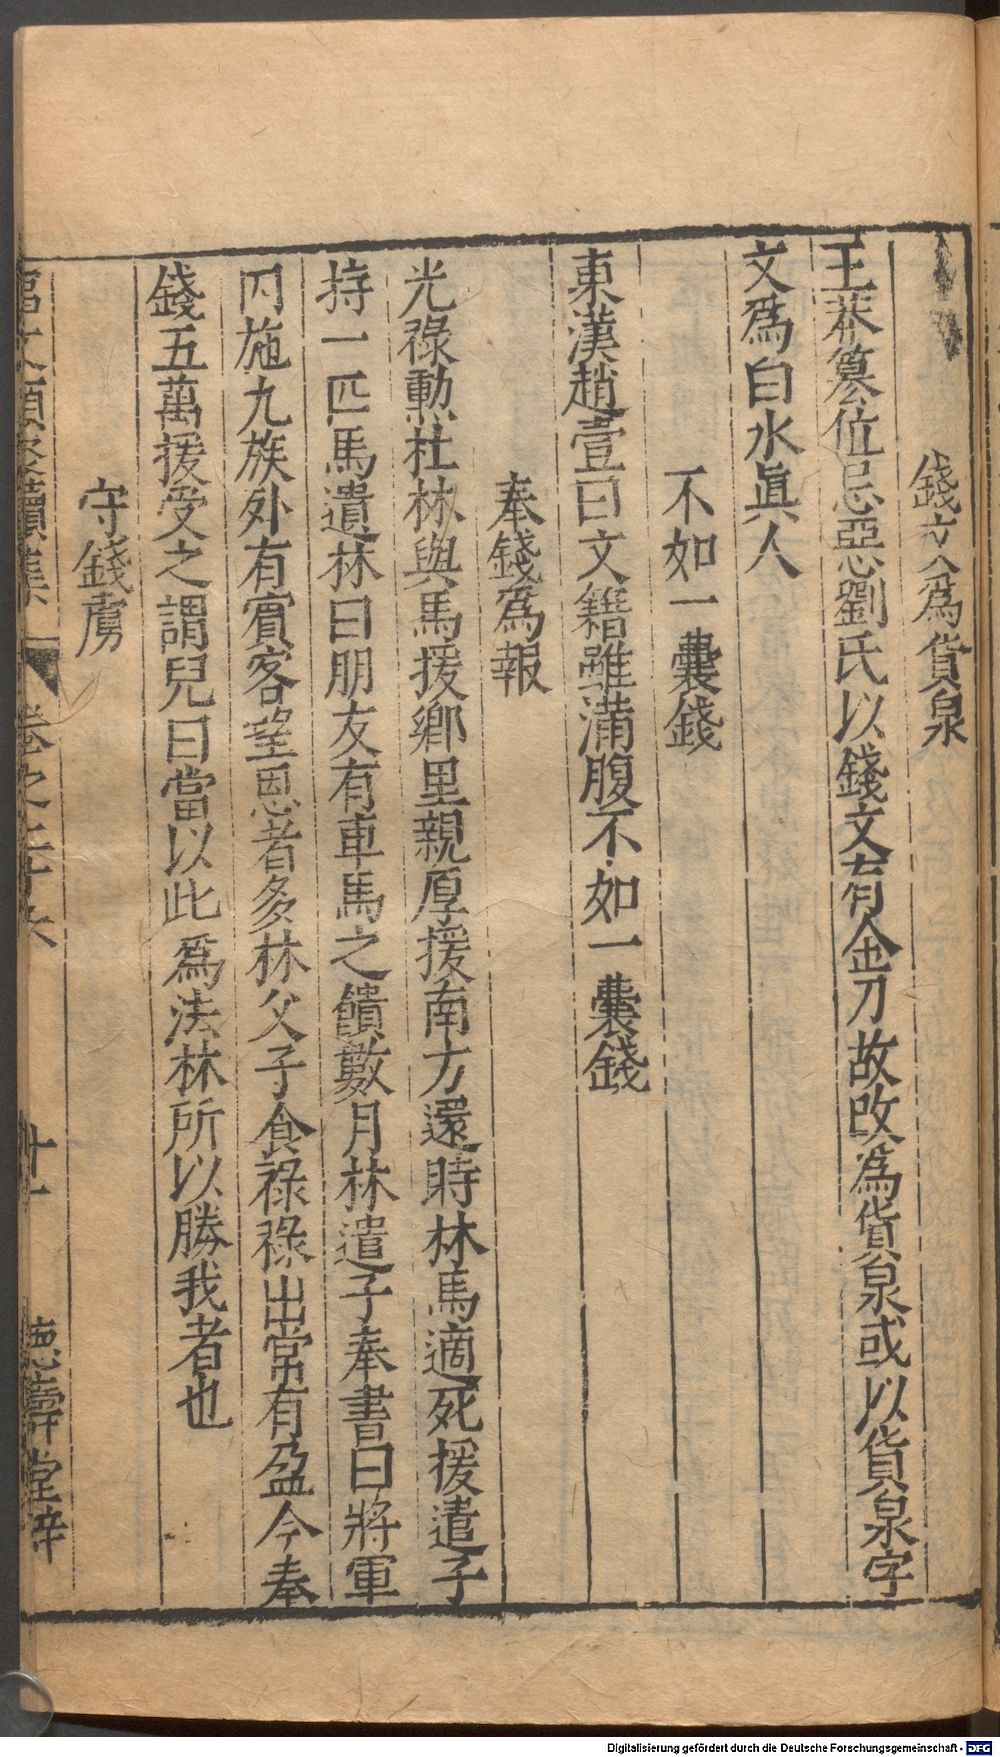 錢文爲貨泉
王莽篡位忌惡劉氏以錢文有金刀故改爲貨泉或以貨泉字
文爲白水眞人
不如一囊錢
東漢趙壹曰文籍雖滿腹不如一囊錢
奉錢爲報
光祿勳杜林與馬援鄉里親厚援南方還時林馬適死援遣子
持一匹馬遺林曰朋友有車馬之饋數月林遣子奉書曰將軍
內施九族外有賓客望恩者多林父子食祿祿出常有盈今奉
錢五萬援受之謂兒曰當以此爲法林所以勝我者也
守錢虜
文類聚續集 卷之二十六 廿一 德壽堂梓
Digitalisierung gefördert durch die Deutsche Forschungsgemeinschaft - DFG